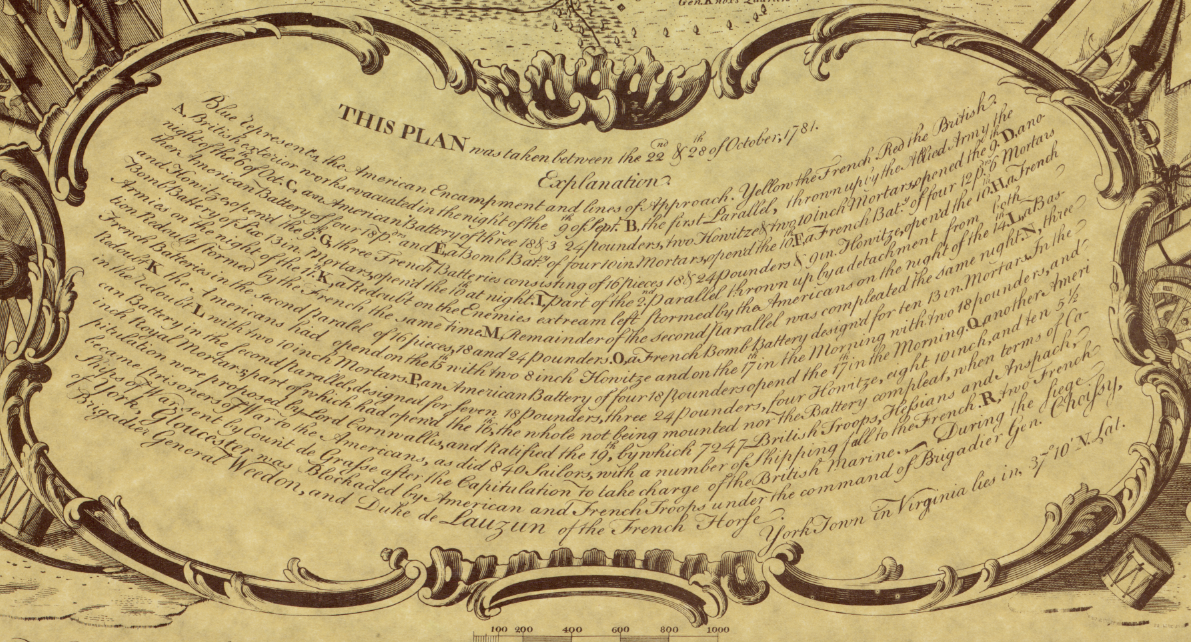 Gen. Knox Quarters
THIS PLAN was taken between the 22nd & 28th of October, 1781.
Explanation.
Blue represents the American Encampment and lines of Approach. Yellow the French. Red the British.
A. British exterior works evacuated in the night of the 9th of Sept. B. the first Parallel, thrown up by the Allied Army the
night of the 6th of Oct. C. an American Battery of three 18 & 3 24 pounders, two Howitze & two 10 inch Mortars, opend the 9th. D. ano
ther American Battery of four 18 prs. and E. a Bomb Baty. of four 10 in. Mortars, opend the 10th. F. a French Baty. of four 12 prs. 6 Mortars
and Howitz opend the 9th. G. three French Batteries consisting of 16 pieces 18 & 24 pounders & 9 in. Howitz, opend the 10th. H. a French
Bomb Battery of Six 13 in. Mortars, opend the 10th at night. I. part of the 2nd Parallel thrown up by a detachment from both
Armies on the night of the 11th. K. a Redoubt on the Enemies extream left stormed by the Americans on the night of the 14th. L. a Bas
tion Redoubt stormed by the French the same time. M. Remainder of the second parallel was compleated the same night. N. three
French Batteries in the second parallel of 16 pieces, 18 and 24 pounders. O. a French Bomb Battery design'd for ten 13 in. Mortars. In the
Redoubt K the Americans had opend on the 15th with two 8 inch Howitze and on the 17th in the Morning with two 18 pounders, and
in the redoubt L with two 10 inch Mortars. P. an American Battery of four 18 pounders opend the 17th in the Morning. Q. another Ameri
can Battery in the second parallel, designed for seven 18 pounders, three 24 pounders, four Howitze, eight 10 inch, and ten 5 1/2
inch Royal Mortars, part of which had opend the 16th. the whole not being mounted nor the Battery compleat, when terms of Ca
pitulation were proposed by Lord Cornwallis, and Ratified the 19th, by which 7247 British Troops, Hessians and Anspach,
became prisoners of War to the Americans, as did 840 Sailors, with a number of Shipping fell to the French. R. two French
Ships of War, sent by Count de Grasse after the Capitulation to take charge of the British Marine. During the siege
of York, Gloucester was Blockaded by American and French Troops under the command of Brigadier Gen. Choissy,
Brigadier General Weedon, and Duke de Lauzun of the French Horse. York Town in Virginia lies in. 37° 10' N. Lat.
100 200 400 600 800 1000